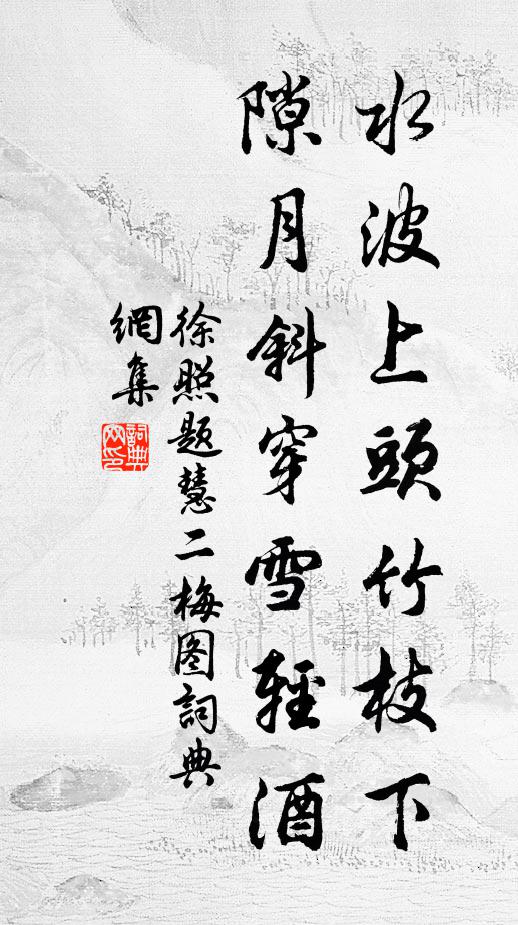 水波上頭竹枝下
隙月斜穿雪輕酒
徐照題慧二梅图詞典
網集
詞典网印